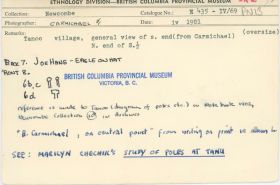 ETHNOLOGY DIVISION—BRITISH COLUMBIA PROVINCIAL MUSEUM
Collection: Newcombe Catalogue No.: E 435 - IV/69 PN13
Photographer: CARMICHAEL Date: iv 1901
(oversize)
Tanoo village, general view of s. end (from Carmichael)
N. end of
BOX 7. JOE HANS - EAGLE ON HAT
6b,c
6d
BRITISH COLUMBIA PROVINCIAL MUSEUM
VICTORIA, B.C.
reference is made to Tanoo (diagram of poles etc.) in note book
Newcombe Collection in Archives
"B. Carmichael, on central point" from writing on print in album
SEE: MARILYN CHECHIK'S STUDY OF POLES AT TANU